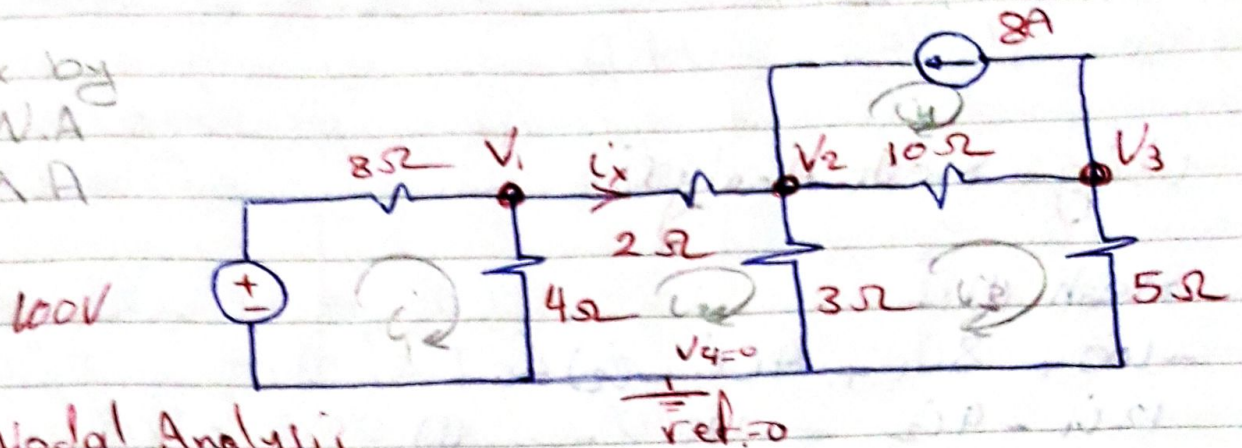 8A
by
N.A
A
i4
8Ω V1 ix V2 10Ω V3
2Ω
100V + - i1 4Ω i2 3Ω i3 5Ω
V4=0
Nodal Analysis
ref.=0